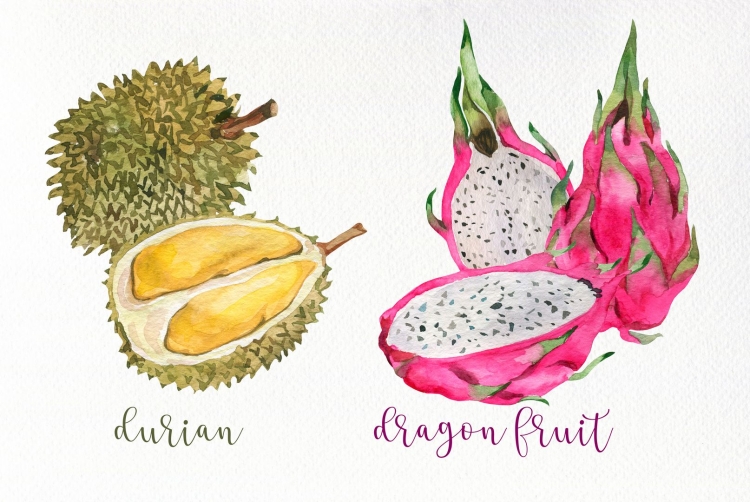 durian
dragon fruit